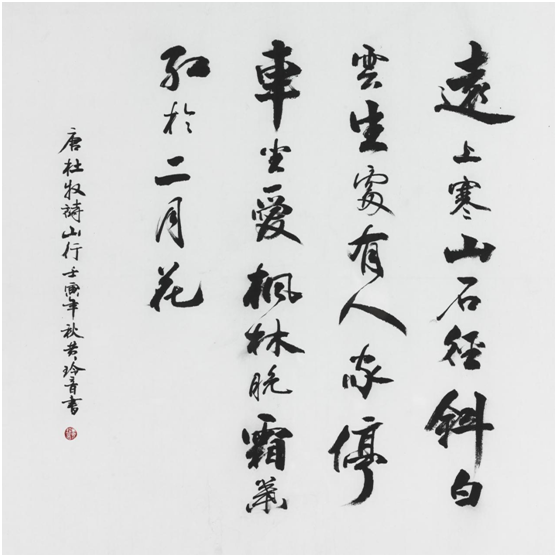 遠上寒山石徑斜白
雲生處有人家停
車坐愛楓林晚霜葉
紅於二月花
唐杜牧詩山行壬寅年秋黃玲音書